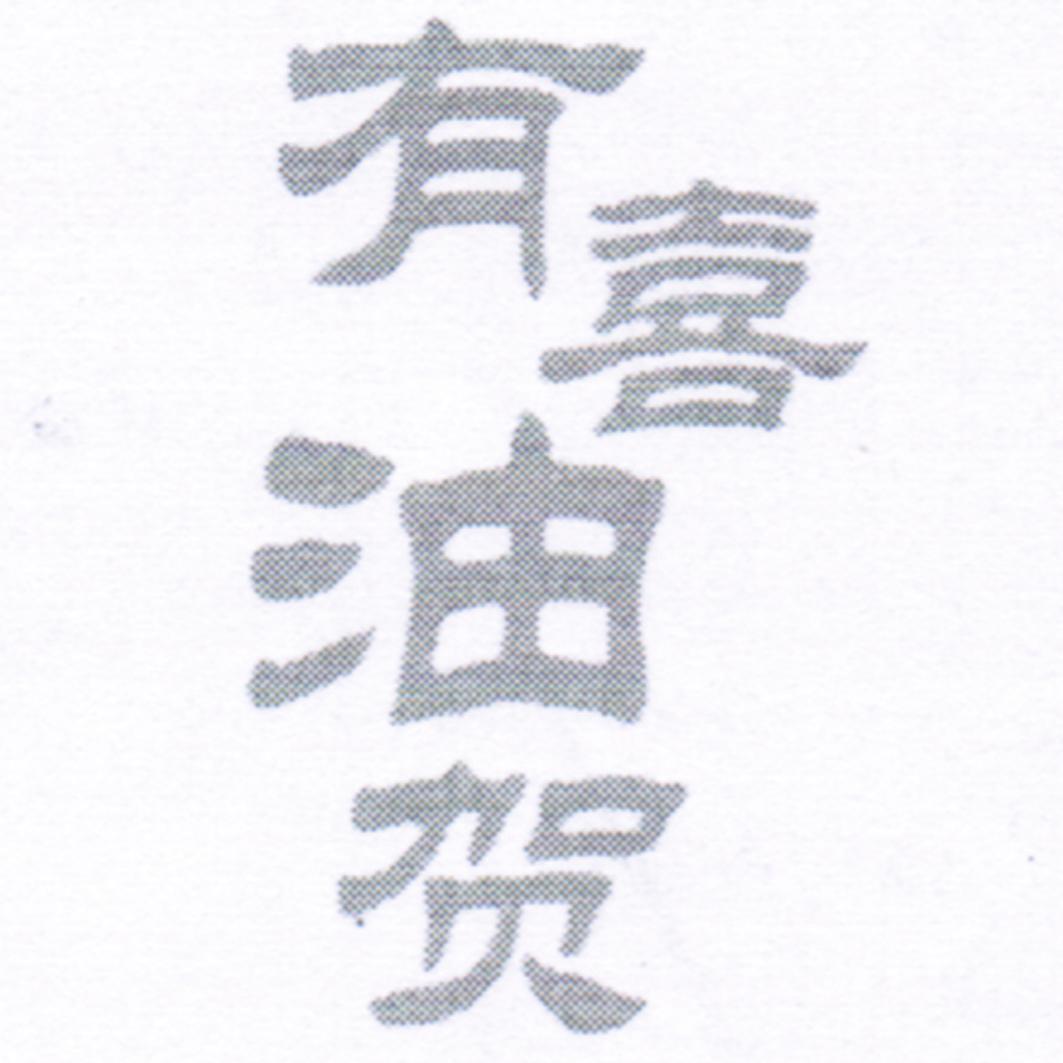 有喜油贺